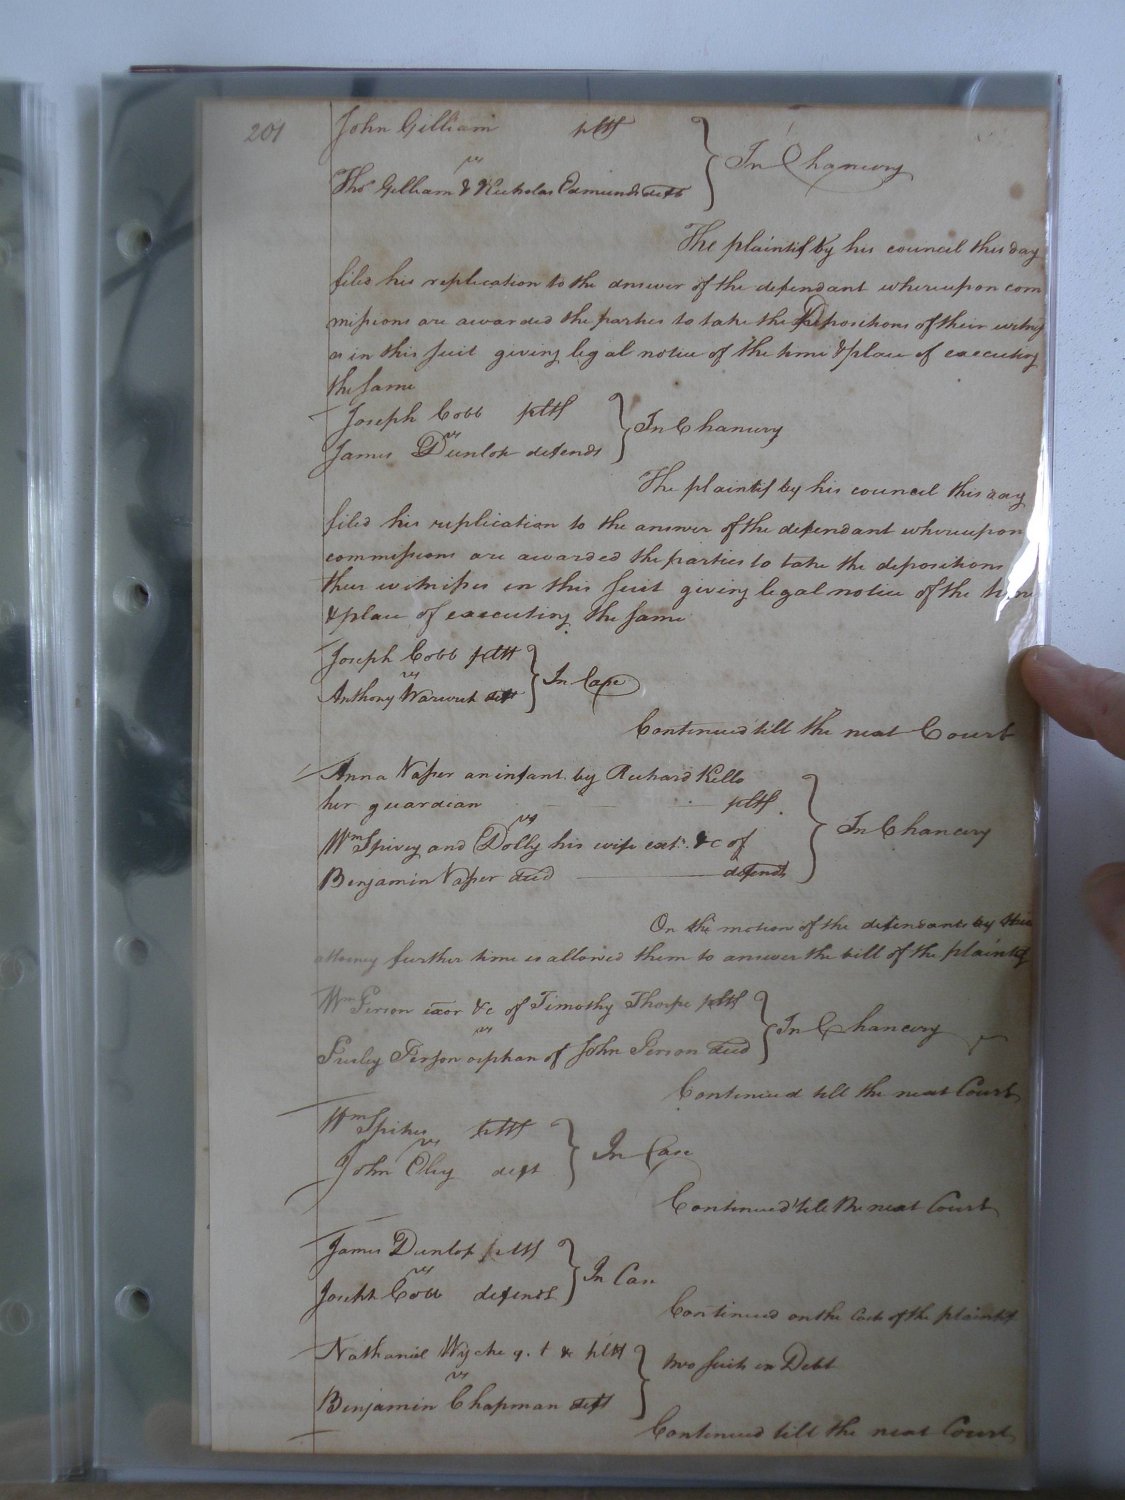 201
John Gilliam pltf
vs
Thos Gilliam & Nicholas Edmunds defts
In Chancery
The plaintif by his council this day
filed his replication to the answer of the defendant whereupon com
missions are awarded the parties to take the Depositions of their witness
es in this suit giving legal notice of the time & place of executing
the same
Joseph Cobb pltf
vs
James Dunlop defends
In Chancery
The plaintif by his council this day
filed his replication to the answer of the defendant whereupon
commissions are awarded the parties to take the depositions
their witnesses in this suit giving legal notice of the time
& place of executing the same
Joseph Cobb pltf
vs
Anthony Warwick deft
In Case
Continued till the next Court
Anna Vasser an infant by Richard Kello
her guardian pltf
vs
Wm Spivey and Dolly his wife exr. &c of
Benjamin Vasser decd defends
In Chancery
On the motion of the defendants by their
attorney further time is allowed them to answer the bill of the plaintif
Wm Person exor &c of Timothy Thorpe pltf
vs
Presley Person orphan of John Person decd
In Chancery
Continued till the next Court
Wm Spikes pltf
vs
John Eley deft
In Case
Continued till the next Court
James Dunlop pltf
vs
Joseph Cobb defends
In Case
Continued on the Cost of the plaintif
Nathaniel Wyche q. t & pltf
vs
Benjamin Chapman deft
two suits in Debt
Continued till the next Court